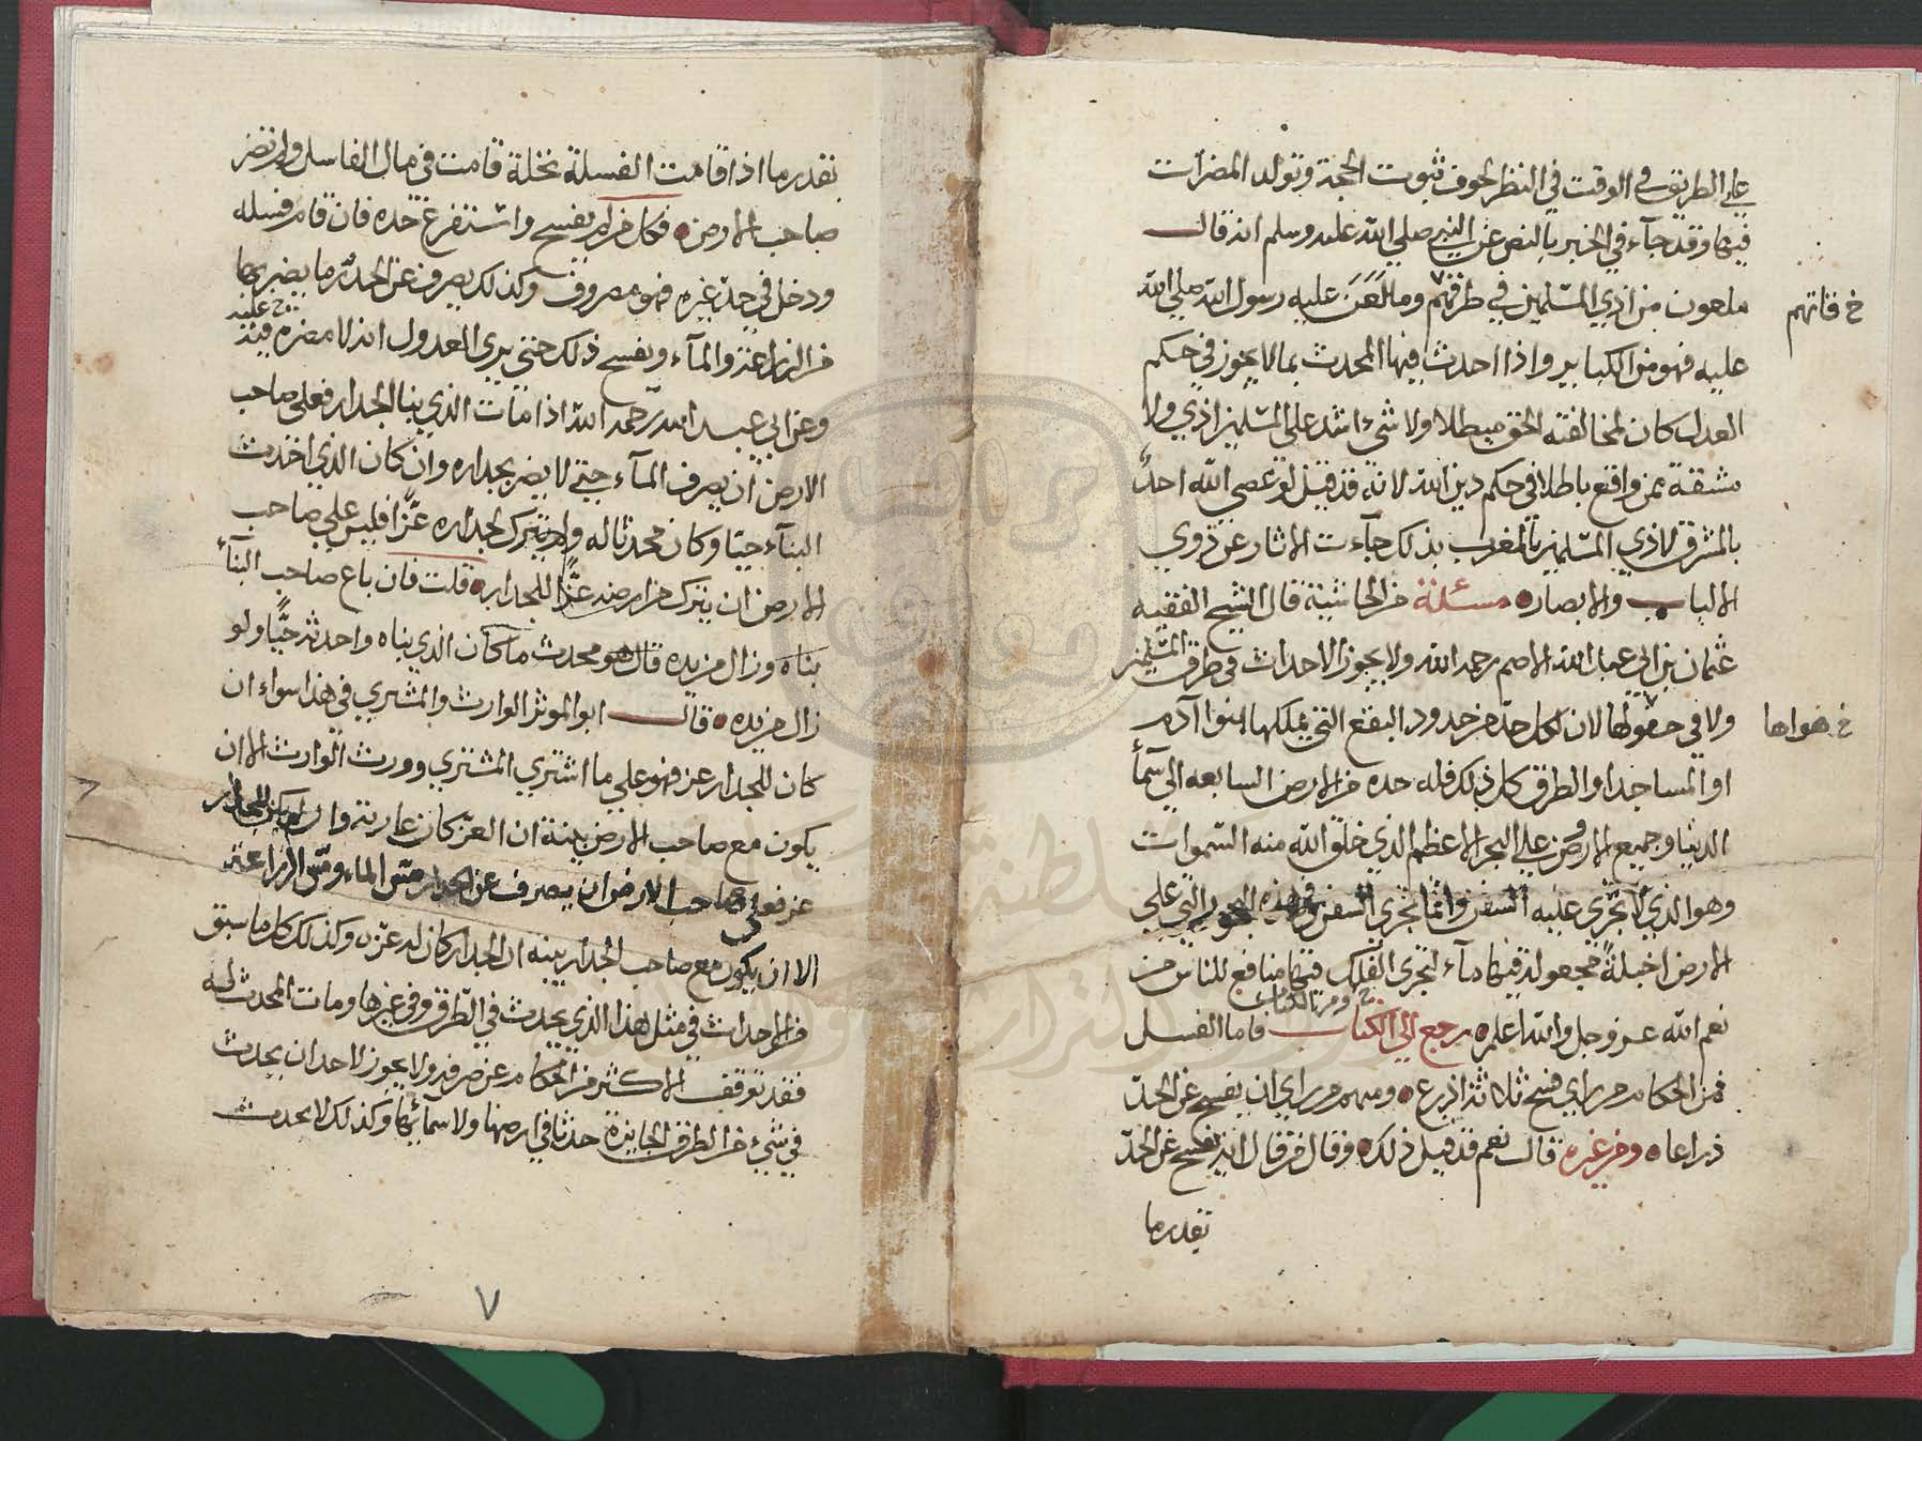 على الطريق في الوقت في النظر لخوف ثبوت الحجة وتولد المضرات
فيها وقد جآء في الخبر بالنص عن النبي صلى الله عليه وسلم انه قال
ملعون من اذي المسلمين في طرقهم وما لَعَنَ عليه رسول الله صلى الله
خ قاتهم
عليه فهو من الكباير واذا احدث فيها المحدث بما لا يجوز في حكم
العدل كان لمخالفته الحق مبطلا ولا شيء اشد على المسلمين اذي ولا
مشقة ممن واقع باطلا في حكم دين الله لانه قد قيل لو عصى الله احدٌ
بالمشرق لاذي المسلمين بالمغرب بذلك جآءت الاثار عن ذوي
الالباب والابصار مسئلة من الحاشية قال الشيخ الفقيه
عثمان بن ابي عبد الله الاصم رحمه الله ولا يجوز الاحداث في طرق المسلمين
ولا في حقولها لان لكل حدّ من حدود البقع التي يملكها بنوا آدم
خ هواها
او المساجد او الطرق كل ذلك فله حده من الارض السابعه الى سمآء
الدنيا وجميع الارض على البحر الاعظم الذي خلق الله منه السموات
وهو الذي لا تجري عليه السفن وانما تجري السفن في هذه البحور التي على
الارض اخبلةً مجعولة فيها مآء لتجري الفلك فيها منافع للناس من
نعم الله عز وجل والله اعلم رجع الى الكتاب فاما الفسل
خ ومن الكتاب
فمن الحكام من راي فسح ثلاثة اذرع ومنهم من راي ان يفسح عن الحدّ
ذراعا ومن غيره قال نعم قد قيل ذلك وقال من قال انه يفسح عن الحدّ
بقدر ما
بقدر ما اذا قامت الفسلة نخلة قامت في مال الفاسل ولم تضر
صاحب الارض فكل من لم يفسح واستفرغ حده فان قام فسله
ودخل في حدّ غيره فهو مصروف وكذلك يصرف عن الحد ما يضر بها
من الزراعة والمآء ويفسح ذلك حتى يرى العدول انه لا مضرة فيه
خ عليه
وعن ابي عبد الله رحمه الله اذا مات الذي بنا الجدار فعلى صاحب
الارض ان يصرف المآء حتى لا يضر بجداره وان كان الذي احدث
البنآء حيّا وكان محدثا له ولم يترك لجداره عزّا فليس على صاحب
الارض ان يترك من ارضه عزّا للجدار قلت فان باع صاحب البنآء
بناه وزال من يده قال هو محدث ما كان الذي بناه واحدثه حيًّا ولو
زال من يده قال ابو الموثر الوارث والمشتري في هذا سواء ان
كان للجدار عز فهو على ما اشتري المشتري وورث الوارث الا ان
يكون مع صاحب الارض بينة ان العز كان عارية وان لم يكن للجدار
عز فعلى صاحب الارض ان يصرف عن الجدار مسّ الماء ومسّ الزراعة
الا ان يكون مع صاحب الجدار بينه ان الجدار كان له عز وكذلك كل ما سبق
من الاحداث في مثل هذا الذي يحدث في الطرق وفي غيرها ومات المحدث له
فقد توقف الاكثر من الحكام عن صرفه ولا يجوز لاحد ان يحدث
في شيء من الطرق الجايزة حدثا في ارضها ولا سمآئها وكذلك لا يحدث
٧